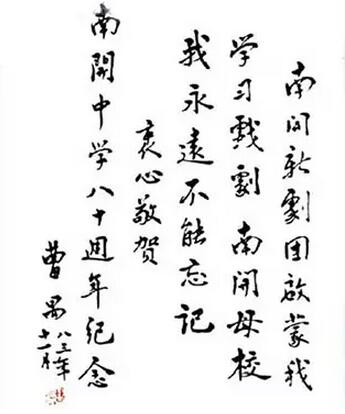 南开新劇团啟蒙我
学习戏劇 南開母校
我永遠不能忘记
衷心敬贺
南開中学八十週年纪念
曹禺
八三年
十一月